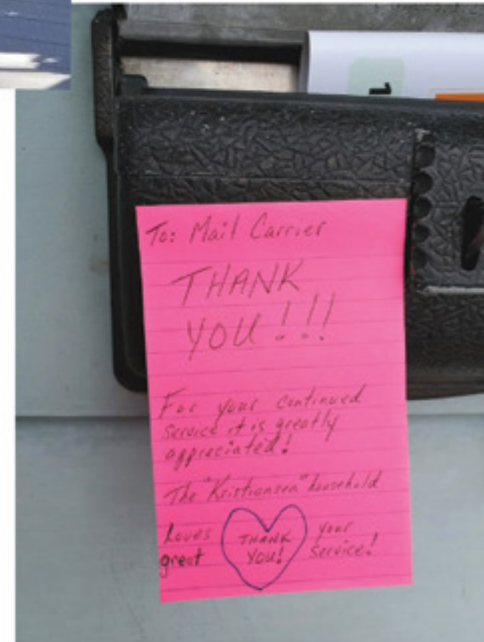 To: Mail Carrier
THANK
YOU!!!
For your continued
service it is greatly
appreciated!
The "Kristiansen" household
Loves THANK your
great YOU! service!